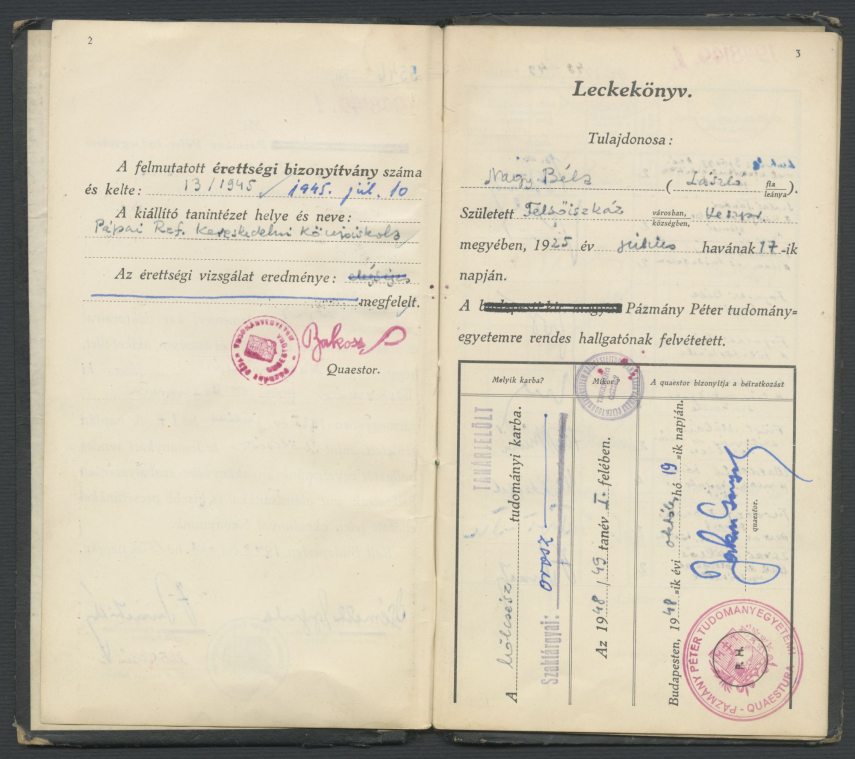 2
A felmutatott érettségi bizonyítvány száma
és kelte: 13/1945 1945. júl. 10
A kiállító tanintézet helye és neve:
Pápai Ref. Kereskedelmi Középiskola
Az érettségi vizsgálat eredménye:
megfelelt.
Bakos
Quaestor.
3
Leckekönyv.
Tulajdonosa:
Nagy Béla (László fia leánya).
Született Felsőiszkáz városban, községben, Veszpr.
megyében, 1925 év július havának 17-ik
napján.
A budapesti kir. magyar Pázmány Péter tudomány=
egyetemre rendes hallgatónak felvétetett.
Melyik karba?
Mikor?
A quaestor bizonyítja a beíratkozást
A bölcsész tudományi karba.
TANÁRJELÖLT
Szaktárgyai: orosz
Az 1948/49 tanév I. felében.
Budapesten, 1948-ik évi október hó 19-ik napján.
quaestor.
PÁZMÁNY PÉTER TUDOMÁNYEGYETEMI QUAESTURA
P. H.